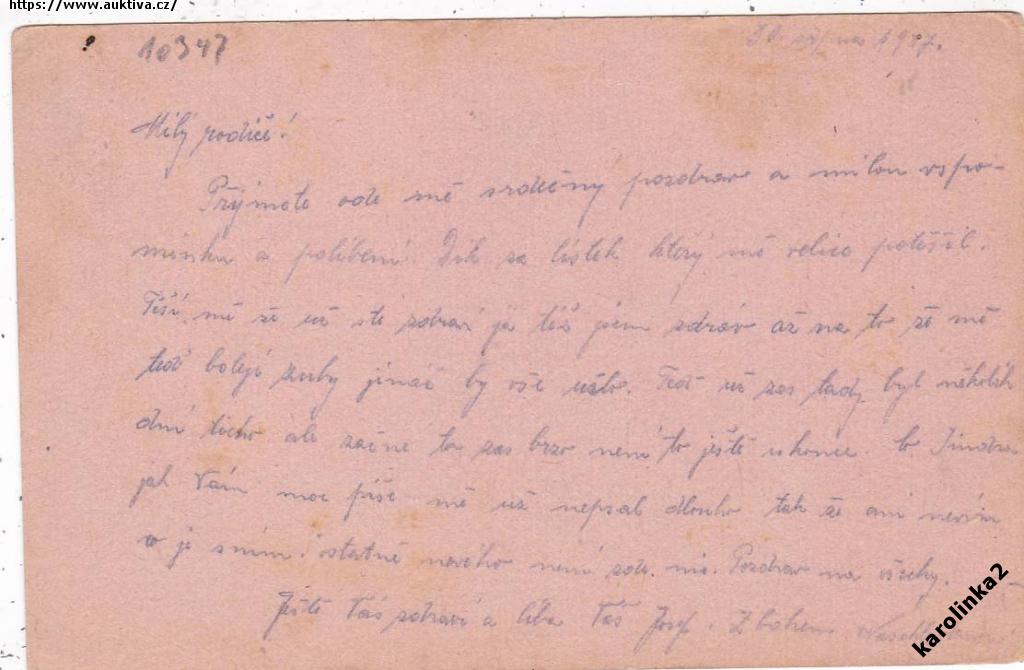 https://www.auktiva.cz/
10347
30. srpna 1917.
Milý rodiče!
Příjmete ode mě srdečný pozdrav a milou vspo-
mínku a políbení. Dík za lístek který mě velice potěšil.
Těší mě že už ste zdraví já též jsem zdráv až na to že mě
teď bolejí zuby jináč by vše ušlo. Teď už zas tady byl několik
dní ticho ale začne to zas brzo není to ještě u konce. Co Jindra
jak Vám moc píše mě už nepsal dlouho tak že ani nevím
co je sním. ostatně nového není zde nic. Pozdrav na všecky.
Ještě Vás zdraví a líbá Váš Josef. Z bohem
karolinka2